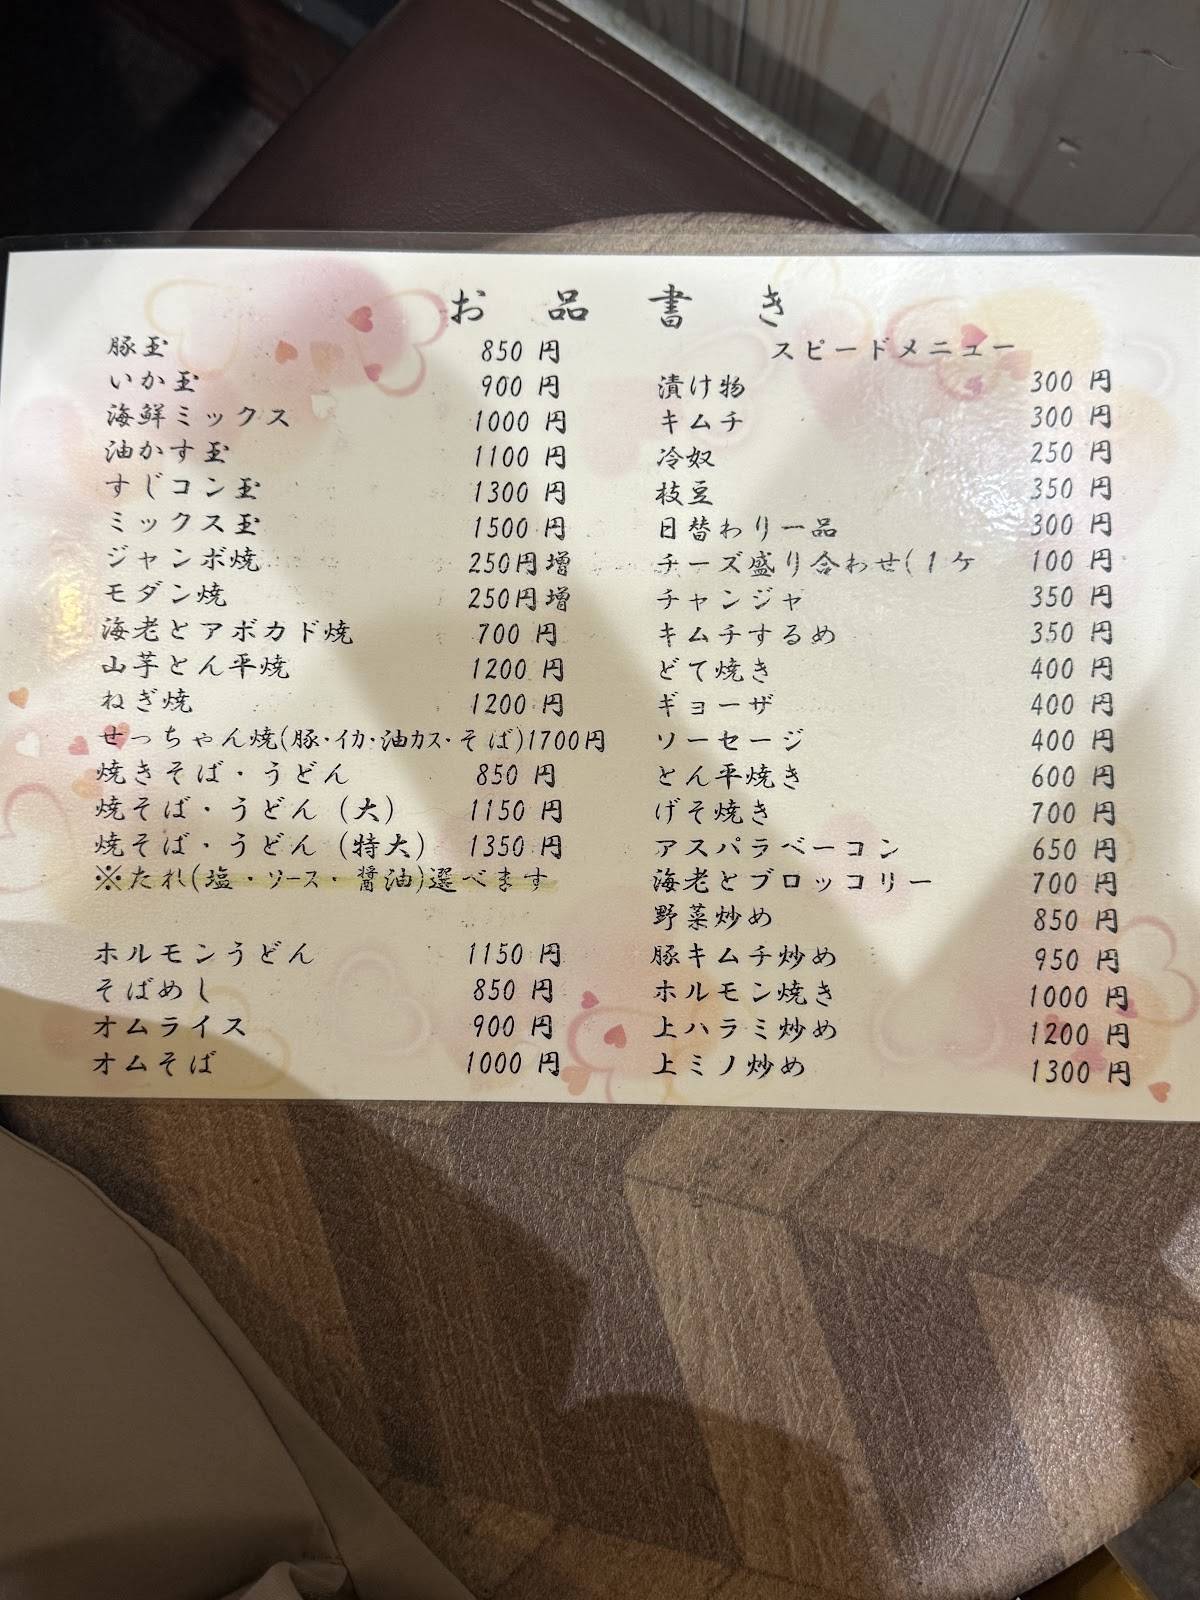 お品書き
豚玉 850円
いか玉 900円
海鮮ミックス 1000円
油かす玉 1100円
すじコン玉 1300円
ミックス玉 1500円
ジャンボ焼 250円増
モダン焼 250円増
海老とアボカド焼 700円
山芋とん平焼 1200円
ねぎ焼 1200円
せっちゃん焼(豚・イカ・油カス・そば)1700円
焼きそば・うどん 850円
焼そば・うどん(大) 1150円
焼そば・うどん(特大) 1350円
※たれ(塩・ソース・醤油)選べます
ホルモンうどん 1150円
そばめし 850円
オムライス 900円
オムそば 1000円
スピードメニュー
漬け物 300円
キムチ 300円
冷奴 250円
枝豆 350円
日替わり一品 300円
チーズ盛り合わせ(1ケ 100円
チャンジャ 350円
キムチするめ 350円
どて焼き 400円
ギョーザ 400円
ソーセージ 400円
とん平焼き 600円
げそ焼き 700円
アスパラベーコン 650円
海老とブロッコリー 700円
野菜炒め 850円
豚キムチ炒め 950円
ホルモン焼き 1000円
上ハラミ炒め 1200円
上ミノ炒め 1300円